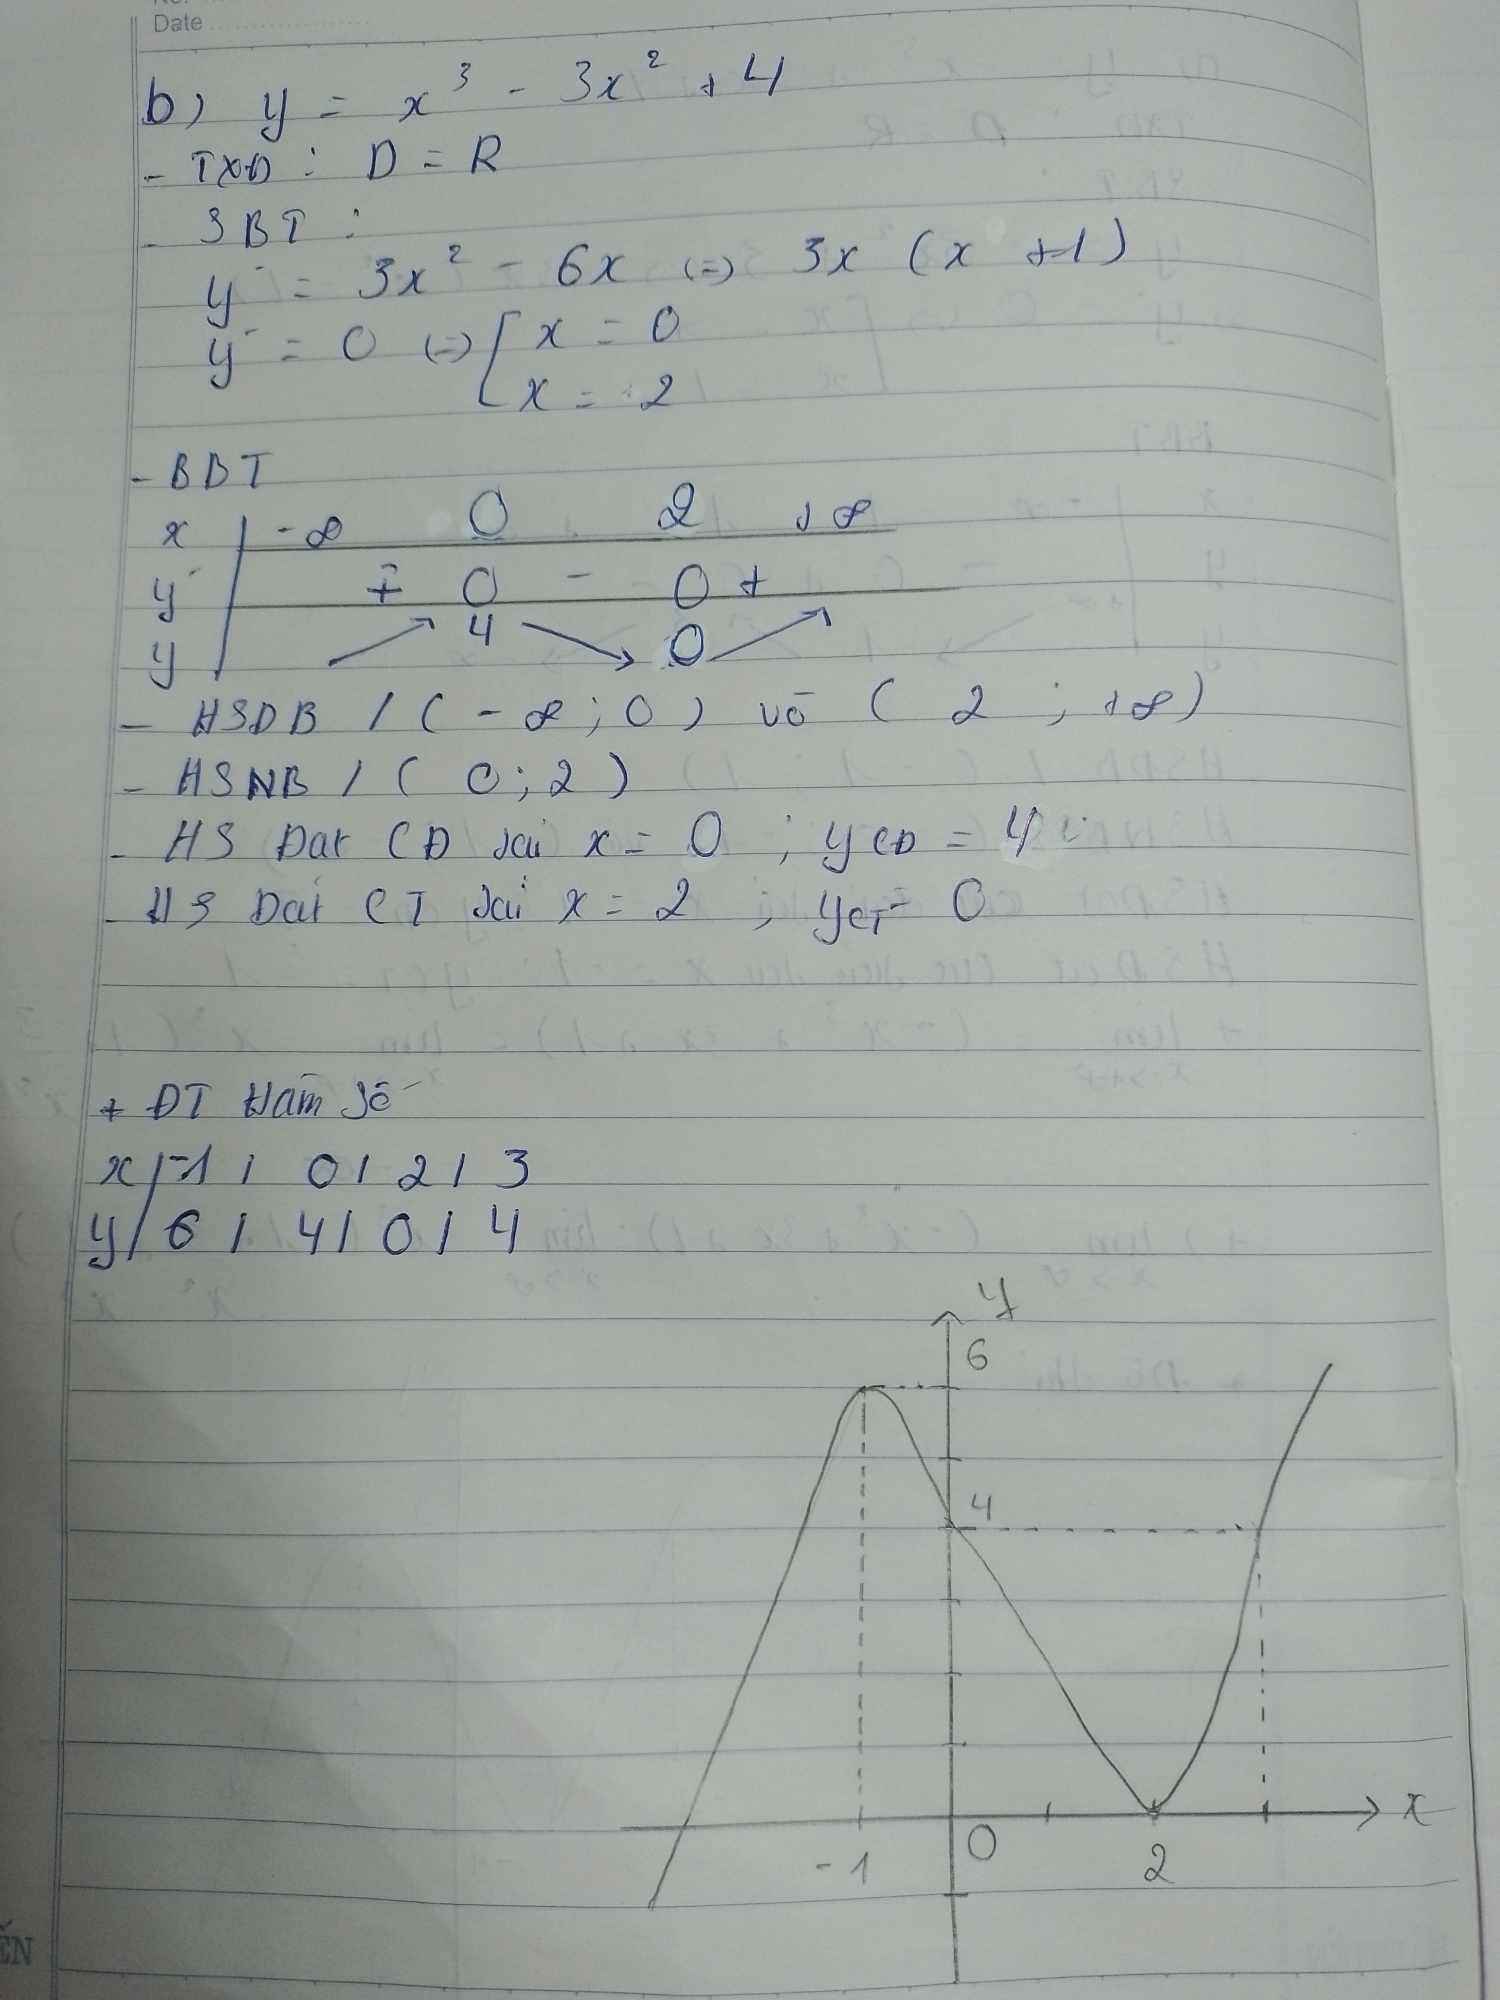 Date
b) y = x³ - 3x² + 4
- TXĐ : D = R
- SBT :
y' = 3x² - 6x (=) 3x (x + 1)
y' = 0 (=) [ x = 0
x = 2
- BBT
x | -∞ 0 2 +∞
y' | + 0 - 0 +
y | ↗ 4 ↘ 0 ↗
- HSĐB / (-∞ ; 0) và ( 2 ; +∞)
- HSNB / ( 0 ; 2 )
- HS Đạt CĐ tại x = 0 ; yCĐ = 4
- HS Đạt CT tại x = 2 ; yCT = 0
+ ĐT Hàm số
x | -1 | 0 | 2 | 3
y | 6 | 4 | 0 | 4
y
6
4
0
x
-1
2
ẾN